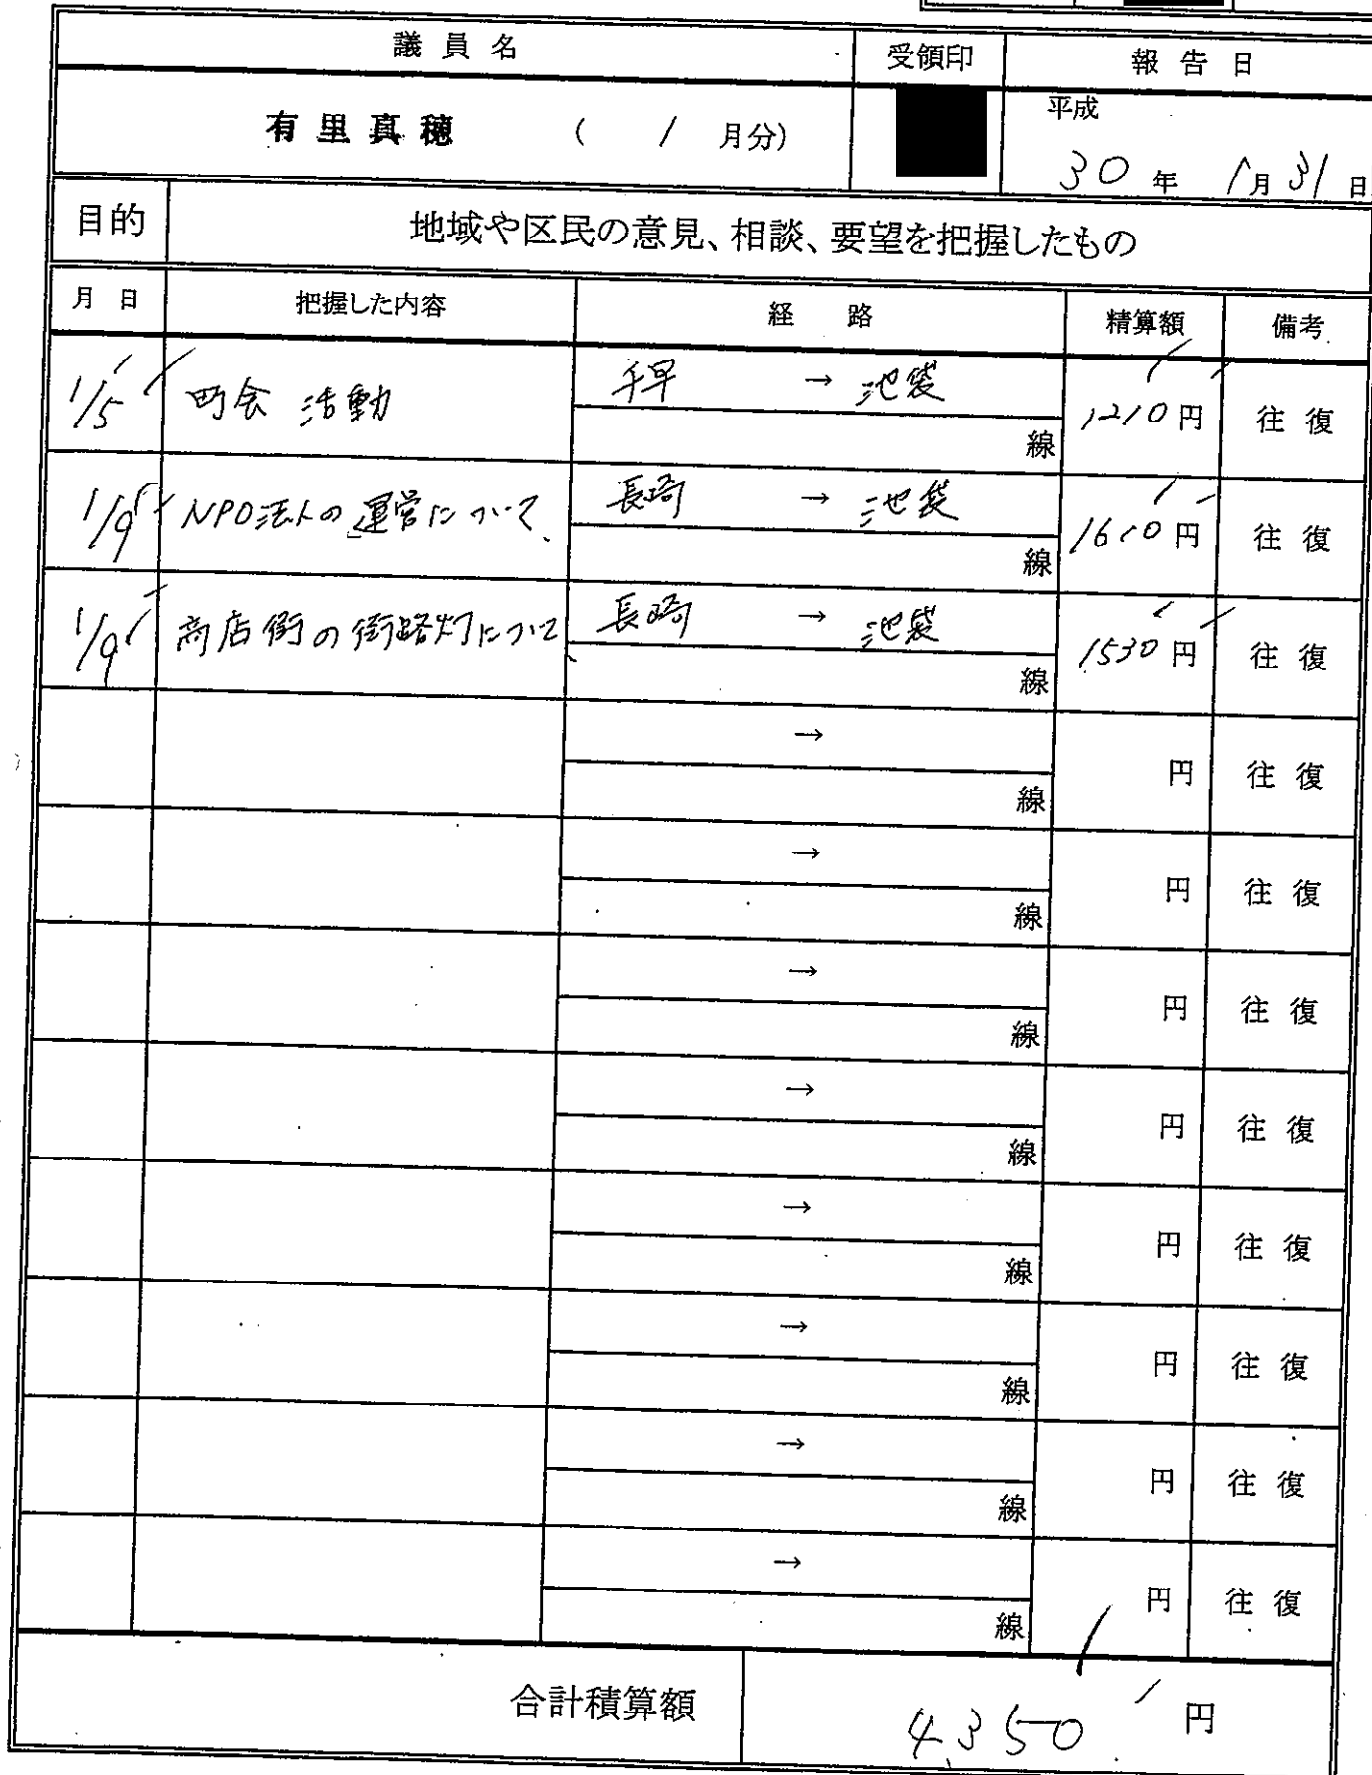 議員名 受領印 報告日
有里真穂 ( 1 月分) 平成
30 年 1月 31 日
目的 地域や区民の意見、相談、要望を把握したもの
月 日 把握した内容 経 路 精算額 備考
1/5 町会 活動 千早 → 池袋 1210円 往 復
線
1/9 NPO法人の運営について 長崎 → 池袋 1610円 往 復
線
1/9 商店街の街路灯について 長崎 → 池袋 1530円 往 復
線
→ 円 往 復
線
→ 円 往 復
線
→ 円 往 復
線
→ 円 往 復
線
→ 円 往 復
線
→ 円 往 復
線
→ 円 往 復
線
→ 円 往 復
線
合計積算額 4,350 円